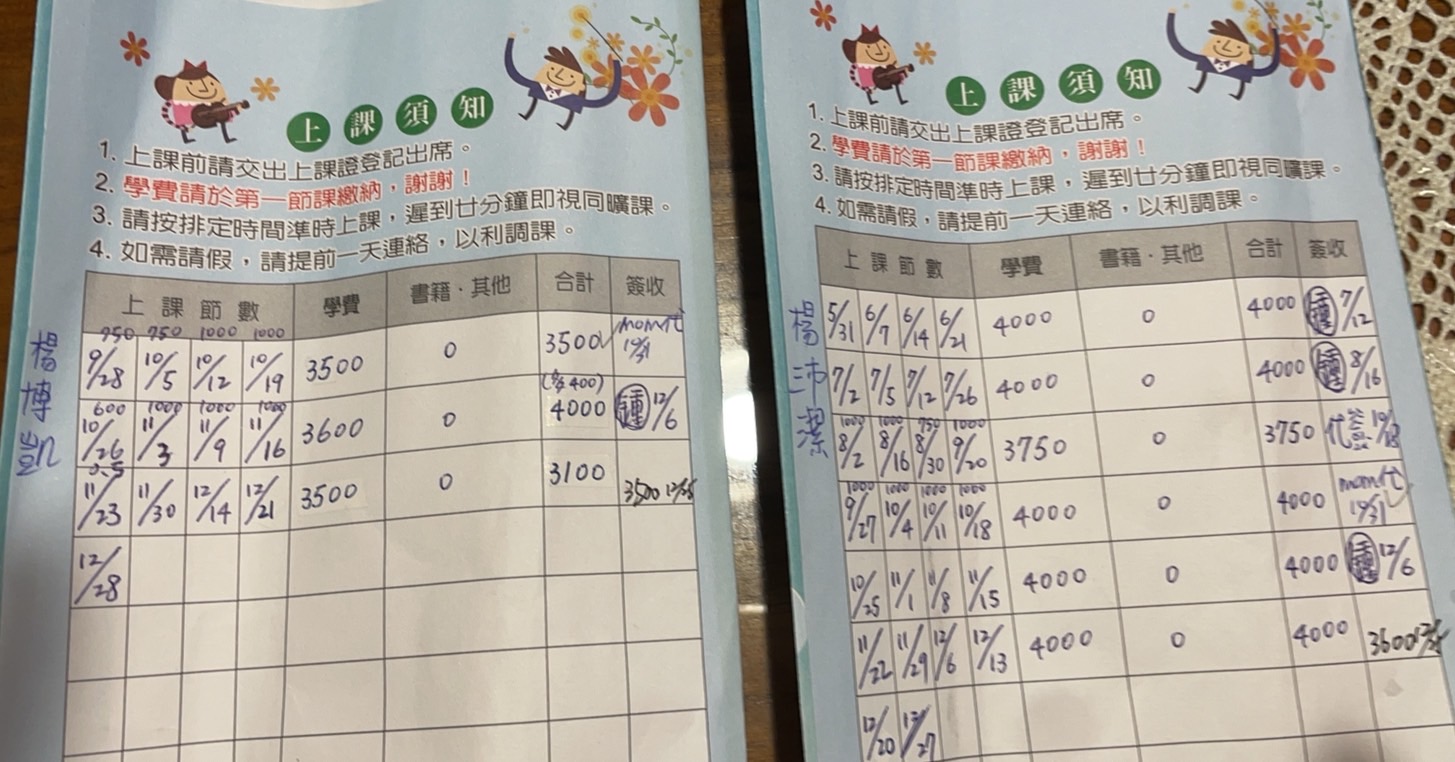 上課須知
1. 上課前請交出上課證登記出席。
2. 學費請於第一節課繳納，謝謝！
3. 請按排定時間準時上課，遲到廿分鐘即視同曠課。
4. 如需請假，請提前一天連絡，以利調課。
上課節數 學費 書籍．其他 合計 簽收
楊博凱
750 750 1000 1000
9/28 10/5 10/12 10/19 3500 0 3500 mom代 10/31
600 1000 1000 1000 400)
10/26 11/3 11/9 11/16 3600 0 4000 12/6
0.5
11/23 11/30 12/14 12/21 3500 0 3100 3500
12/28
上課須知
1. 上課前請交出上課證登記出席。
2. 學費請於第一節課繳納，謝謝！
3. 請按排定時間準時上課，遲到廿分鐘即視同曠課。
4. 如需請假，請提前一天連絡，以利調課。
上課節數 學費 書籍．其他 合計 簽收
楊沛潔
5/31 6/7 6/14 6/21 4000 0 4000 7/12
7/2 7/5 7/12 7/26 4000 0 4000 8/16
1000 1000 750 1000
8/2 8/16 8/30 9/20 3750 0 3750 代
1000 1000 1000 1000
9/27 10/4 10/11 10/18 4000 0 4000 mom代 10/31
10/25 11/1 11/8 11/15 4000 0 4000 12/6
11/22 11/29 12/6 12/13 4000 0 4000 3600
12/20 12/27